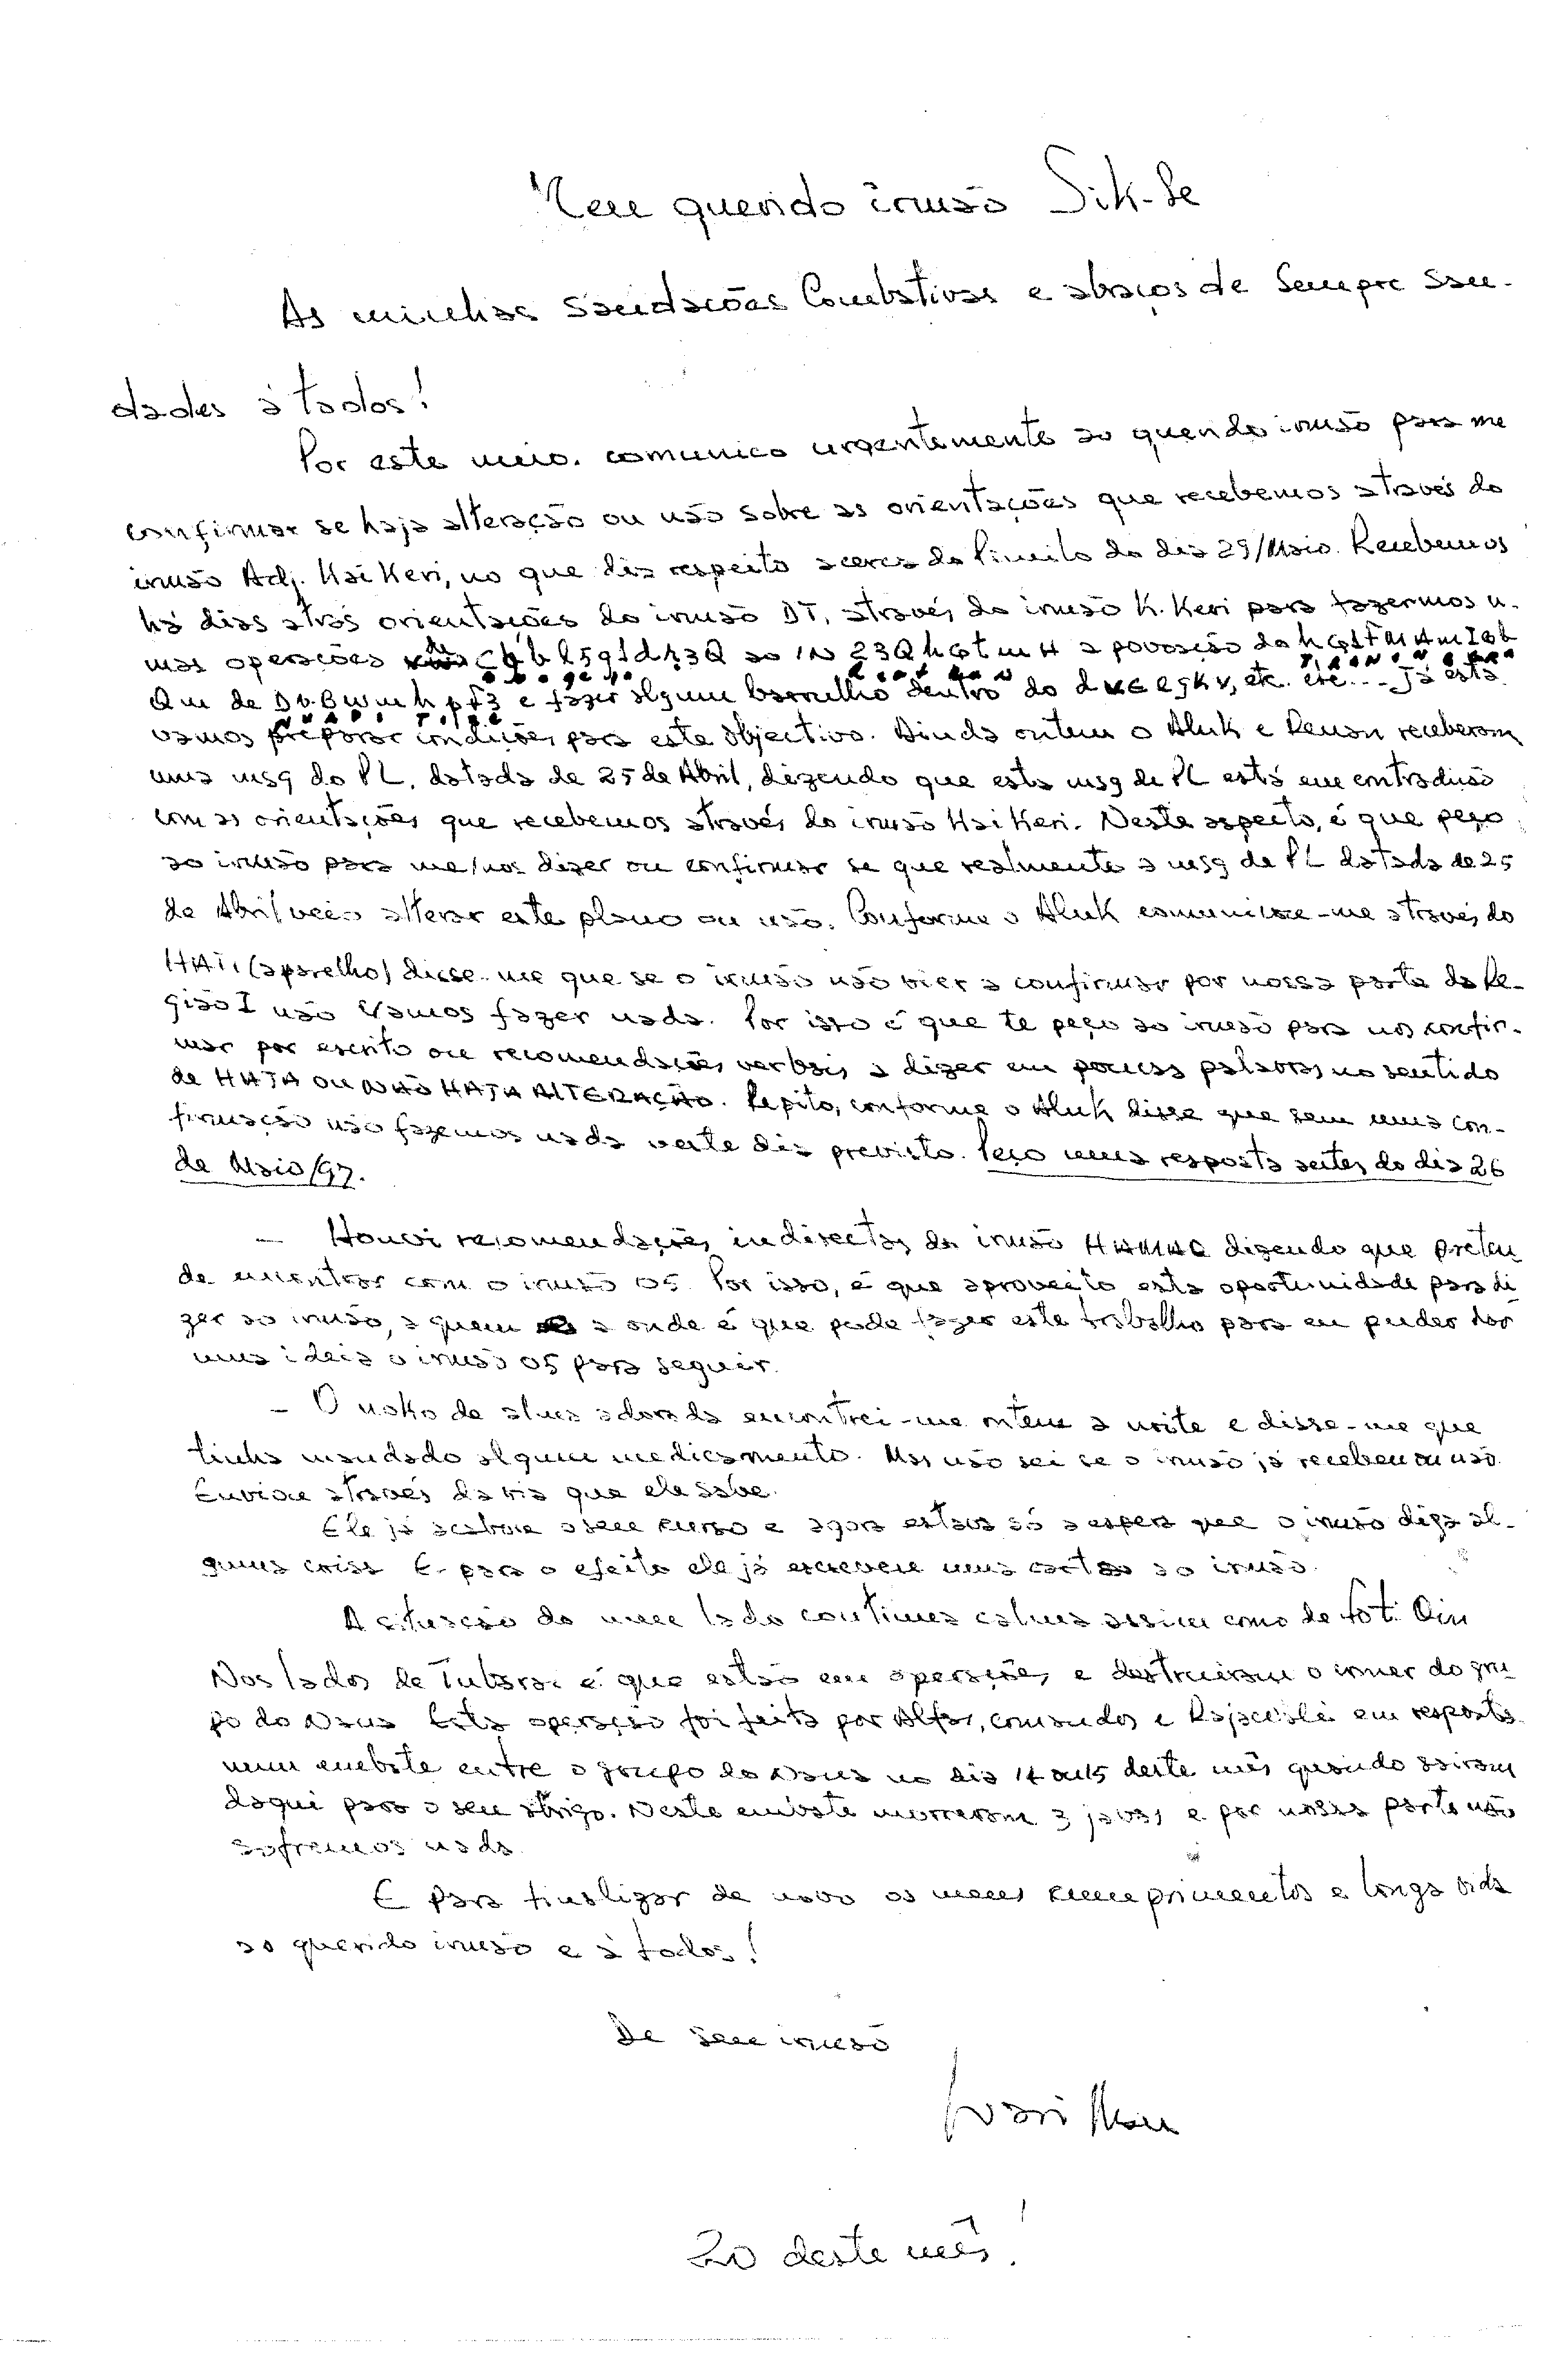 Meu querido irmão Sik-Se
As minhas saudações Combativas e abraços de Sempre sau-
dades à todos!
Por este meio. comunico urgentemente ao querido irmão para me
confirmar se haja alteração ou não sobre as orientações que recebemos através do
irmão Adj. Kai Keri, no que diz respeito acerca do Pimito do dia 29/Maio. Recebemos
há dias atrás orientações do irmão DT, através do irmão K. Keri para fazermos u-
mas operações ao a povoação da
de e fazer algum barrulho dentro do etc. etc... Já está
vamos preparar condições para este objectivo. Ainda ontem o Aluk e Renan receberam
uma msg do PL, datada de 25 de Abril, dizendo que esta msg de PL está em contradisão
com as orientações que recebemos através do irmão Kai Keri. Neste aspecto, é que peço
ao irmão para me/nos dizer ou confirmar se que realmente a msg de PL datada de 25
de Abril veio alterar este plano ou não. Conforme o Aluk comunicou-me através do
HATI (aparelho) disse-me que se o irmão não vier a confirmar por nossa parte da Re-
gião I não vamos fazer nada. Por isto é que te peço ao irmão para nos confir-
mar por escrito ou recomendações verbais a dizer em poucas palavras no sentido
de HAJA OU NÃO HAJA ALTERAÇÃO. Repito, conforme o Aluk disse que sem uma con-
firmação não fazemos nada neste dia previsto. Peço uma resposta antes do dia 26
de Maio/97.
– Houvi recomendações indirectas do irmão dizendo que preten
de encontrar com o irmão 05. Por isso, é que aproveito esta oportunidade para di
zer ao irmão, a quem a onde é que pode fazer este trabalho para eu puder dar
uma ideia o irmão 05 para seguir.
– O de alma adorada encontrei-me ontem a noite e disse-me que
tinha mandado algum medicamento. Mas não sei se o irmão já recebeu ou não.
Enviou através da via que ele sabe.
Ele já acabou o seu curso e agora estava só a espera que o irmão diga al-
guma coisa. E para o efeito ele já escreveu uma carta ao irmão.
A situação do meu lado continua calma assim como de
Nos lados de Tutarai é que estão em operações e destruiram o do gru
po do Naus. Esta operação foi feita por Alfas, comandos e em resposta
num embate entre o grupo do Naus no dia 14 ou 15 deste mês quando sairam
daqui para o seu abrigo. Neste embate morreram 3 javas e por nossa parte não
sofremos nada.
E para finalizar de novo os meus cumprimentos e longa vida
ao querido irmão e à todos!
De seu irmão
20 deste mês!